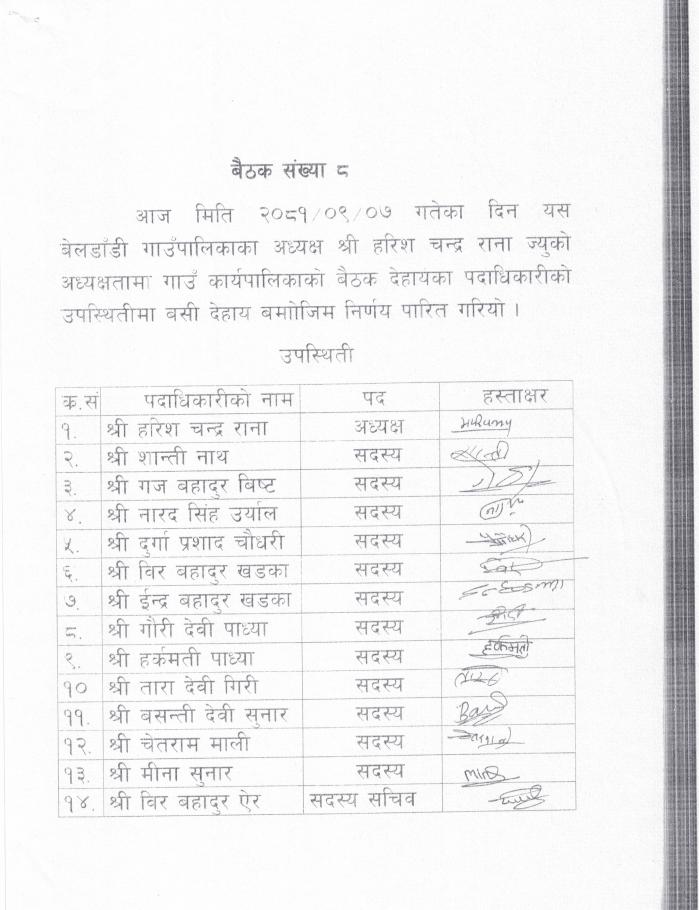 बैठक संख्या ८
आज मिति २०८१/०९/०७ गतेका दिन यस
बेलडाँडी गाउँपालिकाका अध्यक्ष श्री हरिश चन्द्र राना ज्युको
अध्यक्षतामा गाउँ कार्यपालिकाको बैठक देहायका पदाधिकारीको
उपस्थितीमा बसी देहाय बमाोजिम निर्णय पारित गरियो ।
उपस्थिती
क.सं पदाधिकारीको नाम पद हस्ताक्षर
१. श्री हरिश चन्द्र राना अध्यक्ष
२. श्री शान्ती नाथ सदस्य
३. श्री गज बहादुर बिष्ट सदस्य
४. श्री नारद सिंह उर्याल सदस्य
५. श्री दुर्गा प्रशाद चौधरी सदस्य
६. श्री विर बहादुर खडका सदस्य
७. श्री ईन्द्र बहादुर खडका सदस्य
८. श्री गौरी देवी पाध्या सदस्य
९. श्री हर्कमती पाध्या सदस्य हर्कमती
१० श्री तारा देवी गिरी सदस्य
११. श्री बसन्ती देवी सुनार सदस्य
१२. श्री चेतराम माली सदस्य
१३. श्री मीना सुनार सदस्य
१४. श्री विर बहादुर ऐर सदस्य सचिव